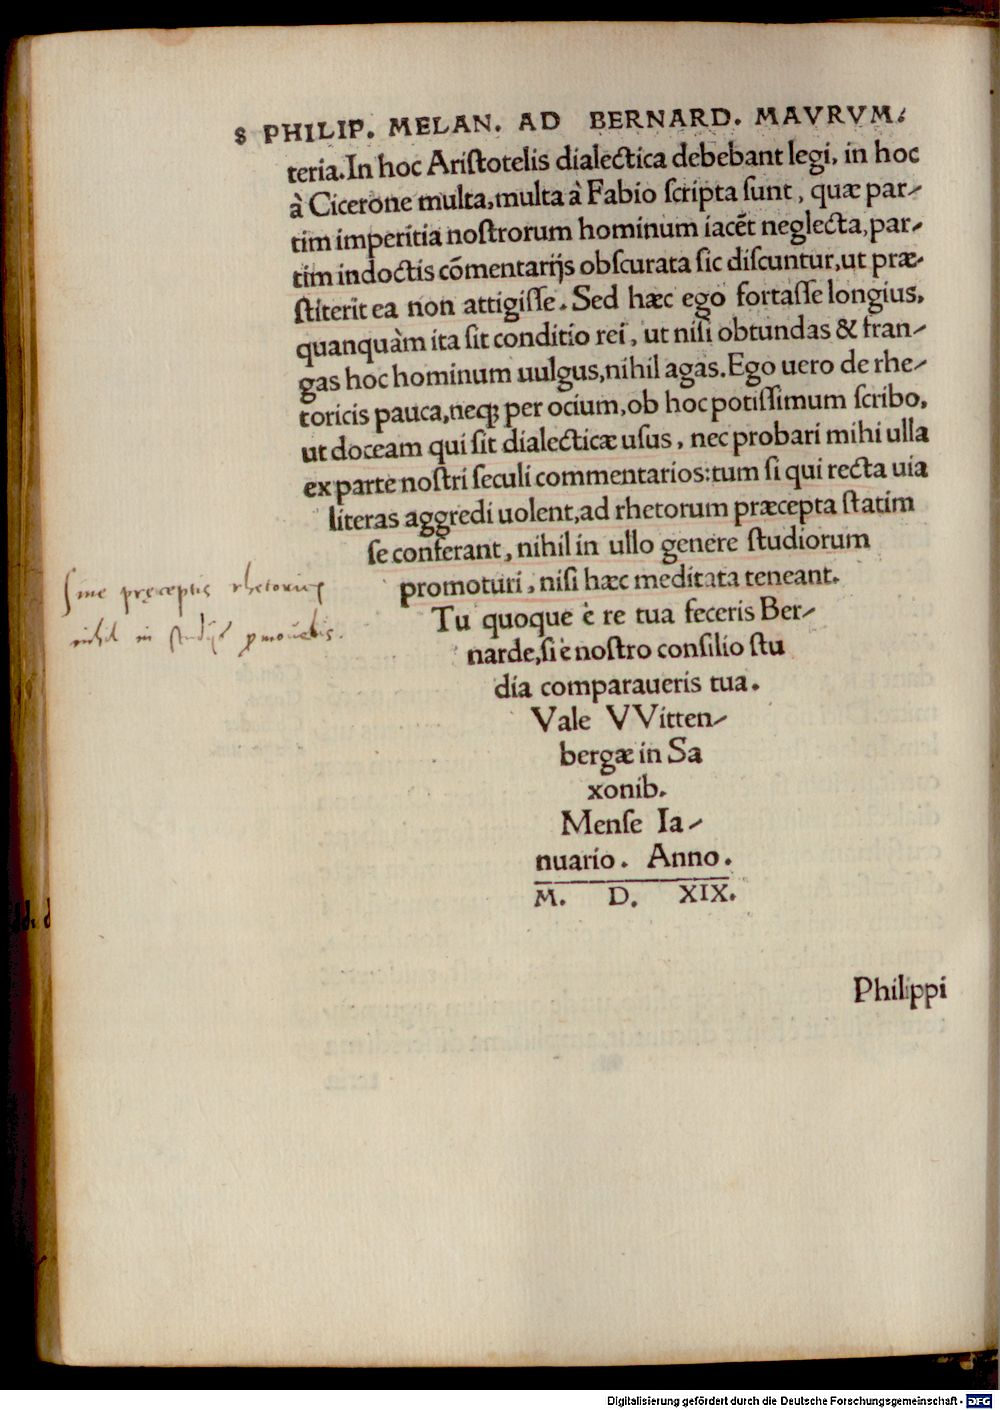 8 PHILIP. MELAN. AD BERNARD. MAVRVM.
teria. In hoc Ariſtotelis dialectica debebant legi, in hoc
à Cicerone multa, multa à Fabio ſcripta ſunt, quæ par-
tim imperitia noſtrorum hominum iacẽt neglecta, par-
tim indoctis cõmentarijs obſcurata ſic diſcuntur, ut præ-
ſtiterit ea non attigiſſe. Sed hæc ego fortaſſe longius,
quanquàm ita ſit conditio rei, ut niſi obtundas & fran-
gas hoc hominum uulgus, nihil agas. Ego uero de rhe-
toricis pauca, neqꝫ per ocium, ob hoc potiſſimum ſcribo,
ut doceam qui ſit dialecticæ uſus, nec probari mihi ulla
ex parte noſtri ſeculi commentarios: tum ſi qui recta uia
literas aggredi uolent, ad rhetorum præcepta ſtatim
ſe conferant, nihil in ullo genere ſtudiorum
promoturi, niſi hæc meditata teneant.
Sine pręceptis rhetoricis
Tu quoque è re tua feceris Ber-
nihil in studijs promouebis.
narde, ſi è noſtro conſilio ſtu
dia comparaueris tua.
Vale VVitten-
bergæ in Sa
xonib.
Menſe Ia-
nuario. Anno.
M. D. XIX.
Philippi
Digitalisierung gefördert durch die Deutsche Forschungsgemeinschaft - DFG